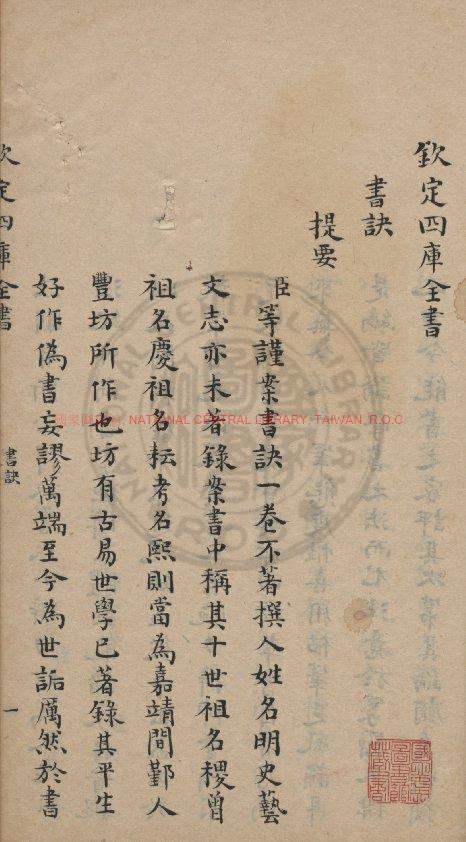 欽定四庫全書
書訣
提要
臣等謹案書訣一卷不著撰人姓名明史藝
文志亦未著錄案書中稱其十世祖名稷曾
祖名慶祖名耘考名熙則當為嘉靖間鄞人
豐坊所作也坊有古易世學已著錄其平生
好作偽書妄謬萬端至今為世詬厲然於書
欽定四庫全書
書訣
一
國家圖書館, NATIONAL CENTRAL LIBRARY, TAIWAN, R.O.C.